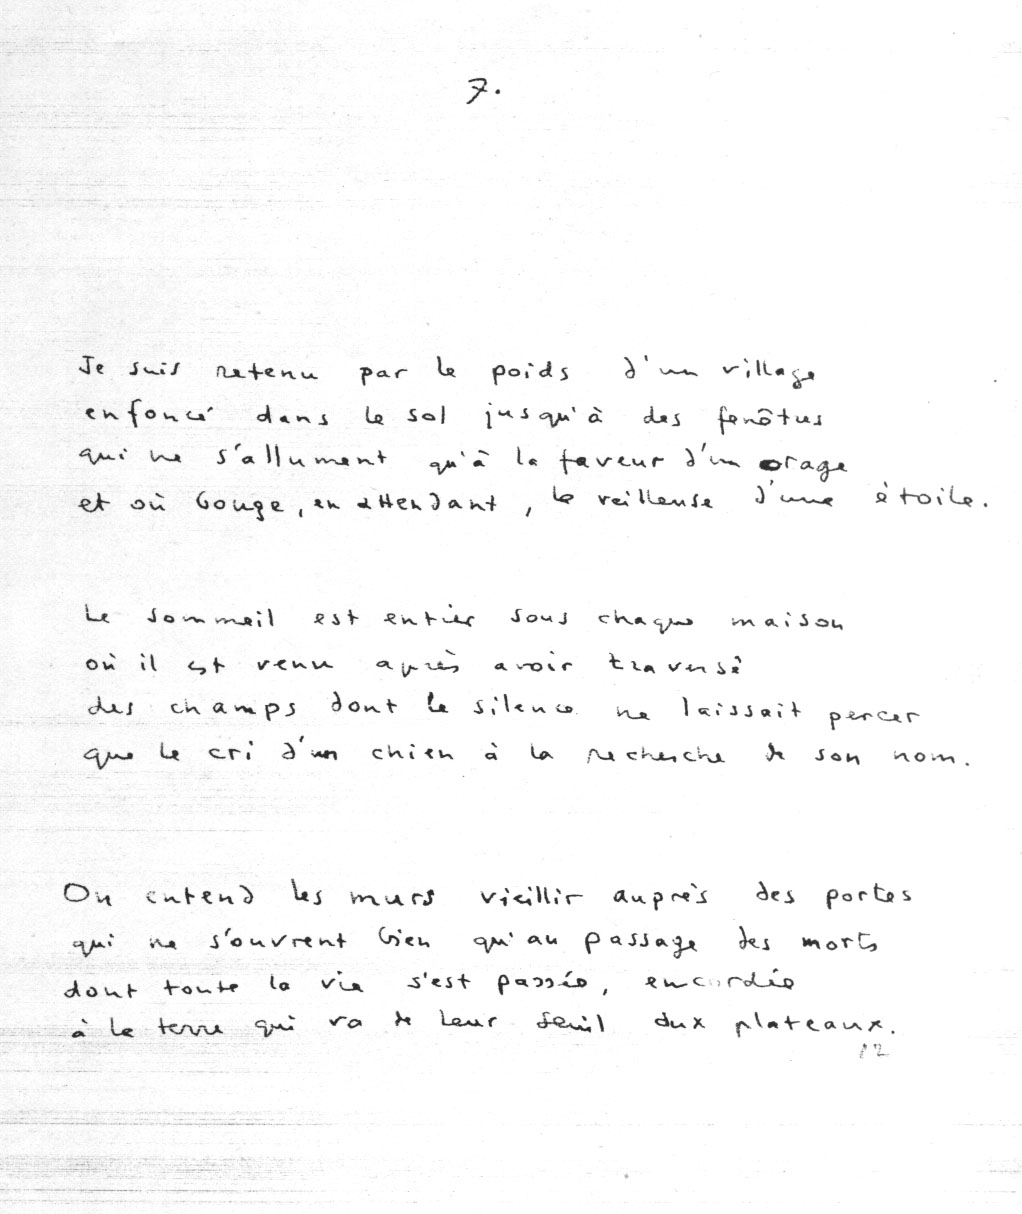 7.
Je suis retenu par le poids d'un village
enfoncé dans le sol jusqu'à des fenêtres
qui ne s'allument qu'à la faveur d'un orage
et où bouge, en attendant, la veilleuse d'une étoile.
Le sommeil est entier sous chaque maison
où il est venu après avoir traversé
des champs dont le silence ne laissait percer
que le cri d'un chien à la recherche de son nom.
On entend les murs vieillir auprès des portes
qui ne s'ouvrent bien qu'au passage des morts
dont toute la vie s'est passée, encordée
à la terre qui va de leur seuil aux plateaux.
12